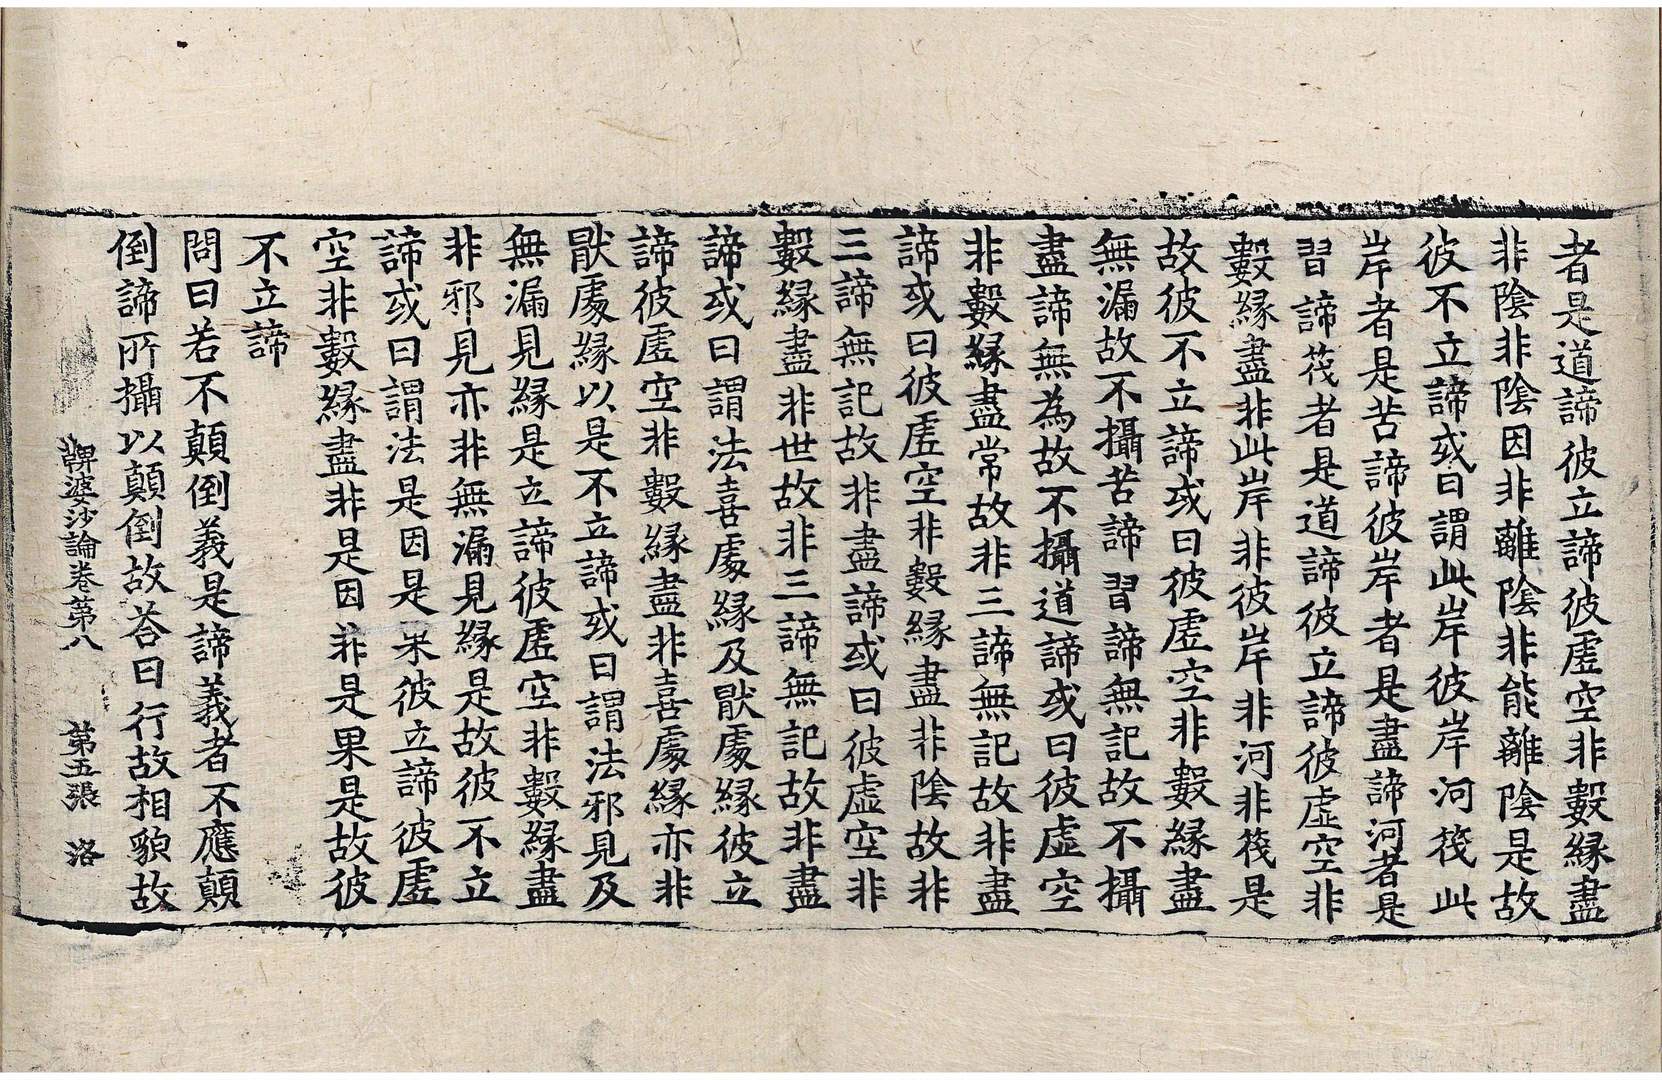 者是道諦彼立諦彼虛空非數緣盡
非陰非陰因非離陰非能離陰是故
彼不立諦或曰謂此岸彼岸河筏此
岸者是苦諦彼岸者是盡諦河者是
習諦筏者是道諦彼立諦彼虛空非
數緣盡非此岸非彼岸非河非筏是
故彼不立諦或曰彼虛空非數緣盡
無漏故不攝苦諦習諦無記故不攝
盡諦無為故不攝道諦或曰彼虛空
非數緣盡常故非三諦無記故非盡
諦或曰彼虛空非數緣盡非陰故非
三諦無記故非盡諦或曰彼虛空非
數緣盡非世故非三諦無記故非盡
諦或曰謂法喜處緣及猒處緣彼立
諦彼虛空非數緣盡非喜處緣亦非
猒處緣以是不立諦或曰謂法邪見及
無漏見緣是立諦彼虛空非數緣盡
非邪見亦非無漏見緣是故彼不立
諦或曰謂法是因是果彼立諦彼虛
空非數緣盡非是因非是果是故彼
不立諦
問曰若不顛倒義是諦義者不應顛
倒諦所攝以顛倒故荅曰行故相貌故
鞞婆沙論卷第八 第五張 洛